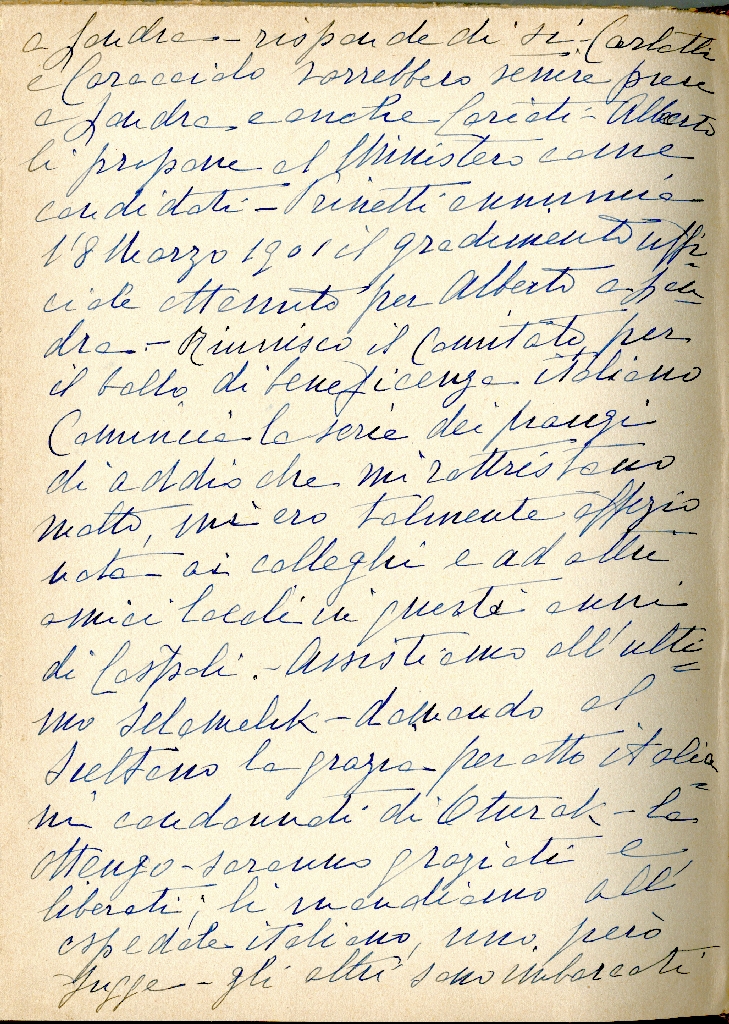 a Londra - risponde di sì - Carlotti
e Caracciolo vorrebbero venire pure
a Londra e anche Cariati - Alberto
li propone al Ministero come
candidati - Prinetti annuncia
l'8 Marzo 1901 il gradimento uffi-
ciale ottenuto per Alberto a Lon-
dra. - Riunisco il Comitato per
il ballo di beneficenza italiano
Comincia la serie dei pranzi
di addio che mi rattristano
molto, mi ero talmente affezio
nata ai colleghi e ad altri
amici locali in questi anni
di Costpoli. - Assistiamo all'ulti-
mo selamelik - domando al
Sultano la grazia per otto italia-
ni condannati di Oturak - la
ottengo - saranno graziati e
liberati; li mandiamo all'
ospedale italiano, uno però
fugge - gli altri sono imbarcati